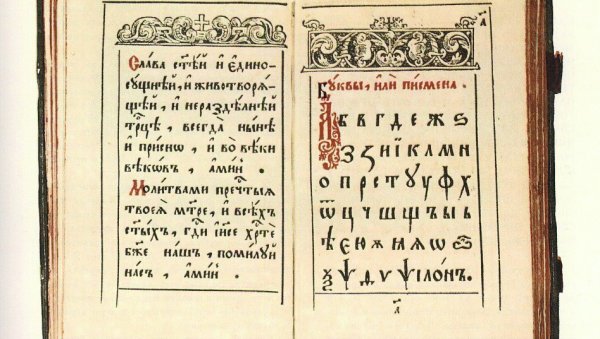 Сла́ва ст҃ѣ́й и҆ є҆ди́но-
сꙋ́щнѣй, и҆ животворѧ́-
щей, и҆ нераздѣ́лнѣй
трⷪ҇цѣ, всегда̀ ны́нѣ
и҆ при́снѡ, и҆ во вѣ́ки
вѣкѡ́въ, а҆ми́нь.
Моли́твами пречⷭ҇тыѧ
твоеѧ̀ мт҃ре, и҆ всѣ́хъ
ст҃ы́хъ, гдⷭ҇и і҆и҃се хрⷭ҇тѐ
бж҃е на́шъ, поми́лꙋй
на́съ, а҆ми́нь.
Бꙋ́квы, и҆лѝ писмена̀.
А Б В Г Д Е Ж Ѕ
З И Ї К Л М Н
О П Р С Т Ꙋ У Ф Х
Ѿ Ц Ч Ш Щ Ъ Ы Ь
Ѣ Є Ю Ꙗ Ѡ
Ѱ